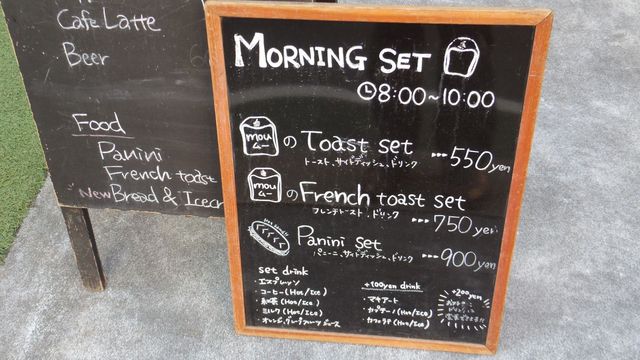 Cafe Latte
Beer
Food
Panini
French toast
New Bread & Icecr
MORNING SET
8:00~10:00
mou ムー の Toast set ---550yen
トースト、サイドディッシュ、ドリンク
mou ムー の French toast set
フレンチトースト、ドリンク ---750yen
Panini set
パニーニ、サイドディッシュ、ドリンク ---900yen
set drink
・エスプレッソ
・コーヒー(Hot/Ice)
・紅茶(Hot/Ice)
・ミルク(Hot/Ice)
・オレンジ、グレープフルーツジュース
+100yen drink
・マキアート
・カプチーノ(Hot/Ice)
・カフェラテ(Hot/Ice)
+200yen